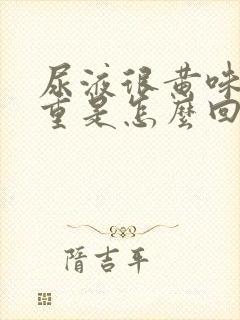 尿液很黄味
重是怎麼回
隋吉平